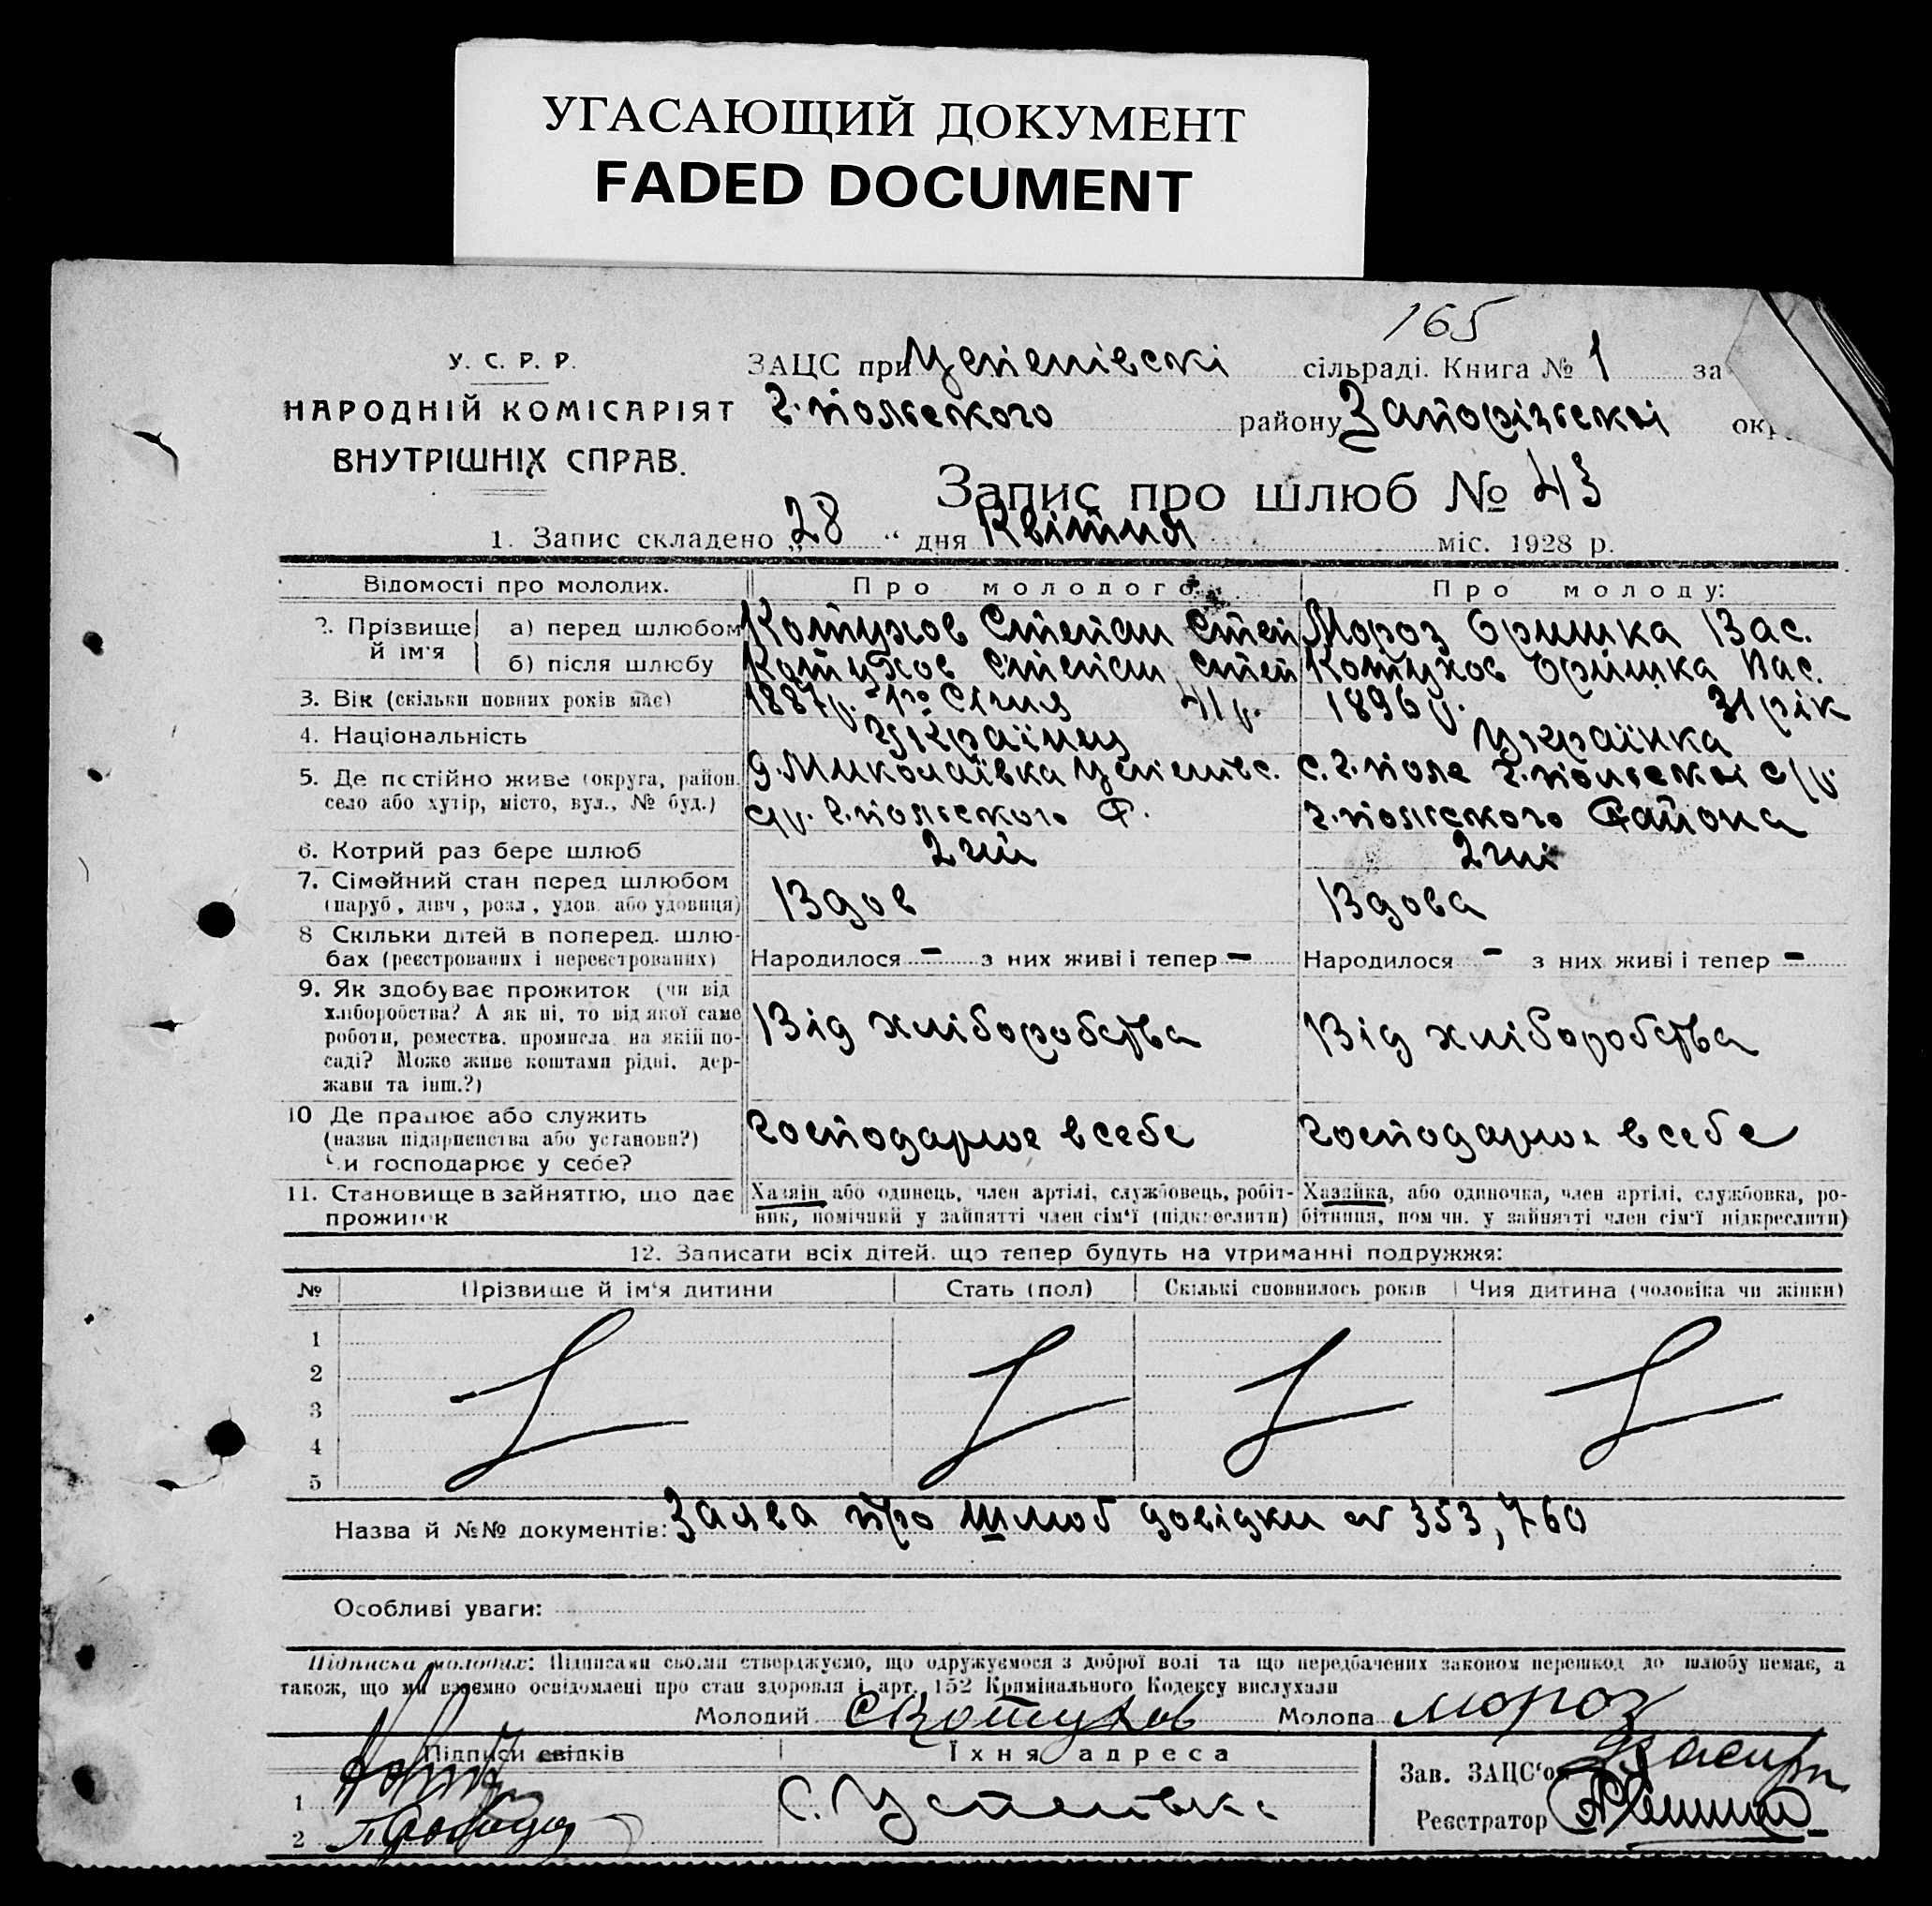 УГАСАЮЩИЙ ДОКУМЕНТ
FADED DOCUMENT
165
У. С. Р. Р.
НАРОДНІЙ КОМІСАРІЯТ
ВНУТРІШНІХ СПРАВ.
ЗАЦС при Успенівскі сільраді. Книга № 1 за
Г.польского району Запорізської окр
Запис про шлюб № 43
1. Запис складено „28“ дня Квітня міс. 1928 р.
Відомості про молодих. Про молодого: Про молоду:
2. Прізвище й ім'я
а) перед шлюбом Котухов Степан Степ Мороз Оришка Вас.
б) після шлюбу Котухов Степан Степ Котухов Оришка Вас.
3. Вік (скільки повних років має) 1887р. Січня 41р. 1896р. 31 рік
4. Національність Українец Українка
5. Де постійно живе (округа, район. село або хутір, місто, вул., № буд.)
д. Миколаївка Успенівс. с/р. Г.польского р.
с. Г.поле Г.польскоі с/р. Г.польского района
6. Котрий раз бере шлюб 2гий 2гий
7. Сімейний стан перед шлюбом
(паруб, дівч, розл, удов. або удовиця) Вдов Вдова
8 Скільки дітей в поперед. шлю-
бах (реєстрованих і нереєстрованих) Народилося - з них живі і тепер - Народилося - з них живі і тепер -
9. Як здобуває прожиток (чи від
хліборобства? А як ні, то від якої саме
роботи, ремества, промисла, на якій по-
саді? Може живе коштами рідні, дер-
жави та інш.?)
Від хліборобства Від хліборобства
10 Де працює або служить
(назва підприємства або установи?)
Чи господарює у себе?
Господарює в себе Господарює в себе
11. Становище в зайняттю, що дає
прожиток
Хазяїн або одинець, член артілі, службовець, робіт-
ник, помічний у зайнятті член сім'ї (підкреслити)
Хазяйка, або одиночка, член артілі, службовка, ро-
бітниця, помічн. у зайнятті член сім'ї підкреслити)
12. Записати всіх дітей, що тепер будуть на утриманні подружжя:
№ Прізвище й ім'я дитини Стать (пол) Скількі сповнилось років Чия дитина (чоловіка чи жінки)
1
2
3
4
5
Назва й №№ документів: Заява про шлюб довідки № 353, 760
Особливі уваги:
Підписка молодих: Підписами своїми стверджуємо, що одружуємося з доброї волі та що передбачених законом перешкод до шлюбу немає, а
також, що ми взаємно освідомлені про стан здоровля і арт. 152 Крімінального Кодексу вислухали
Молодий СКотухов Молода Мороз
Підписи свідків Їхня адреса
Зав. ЗАЦС'ом
1 с. Успенівка
Реєстратор
2